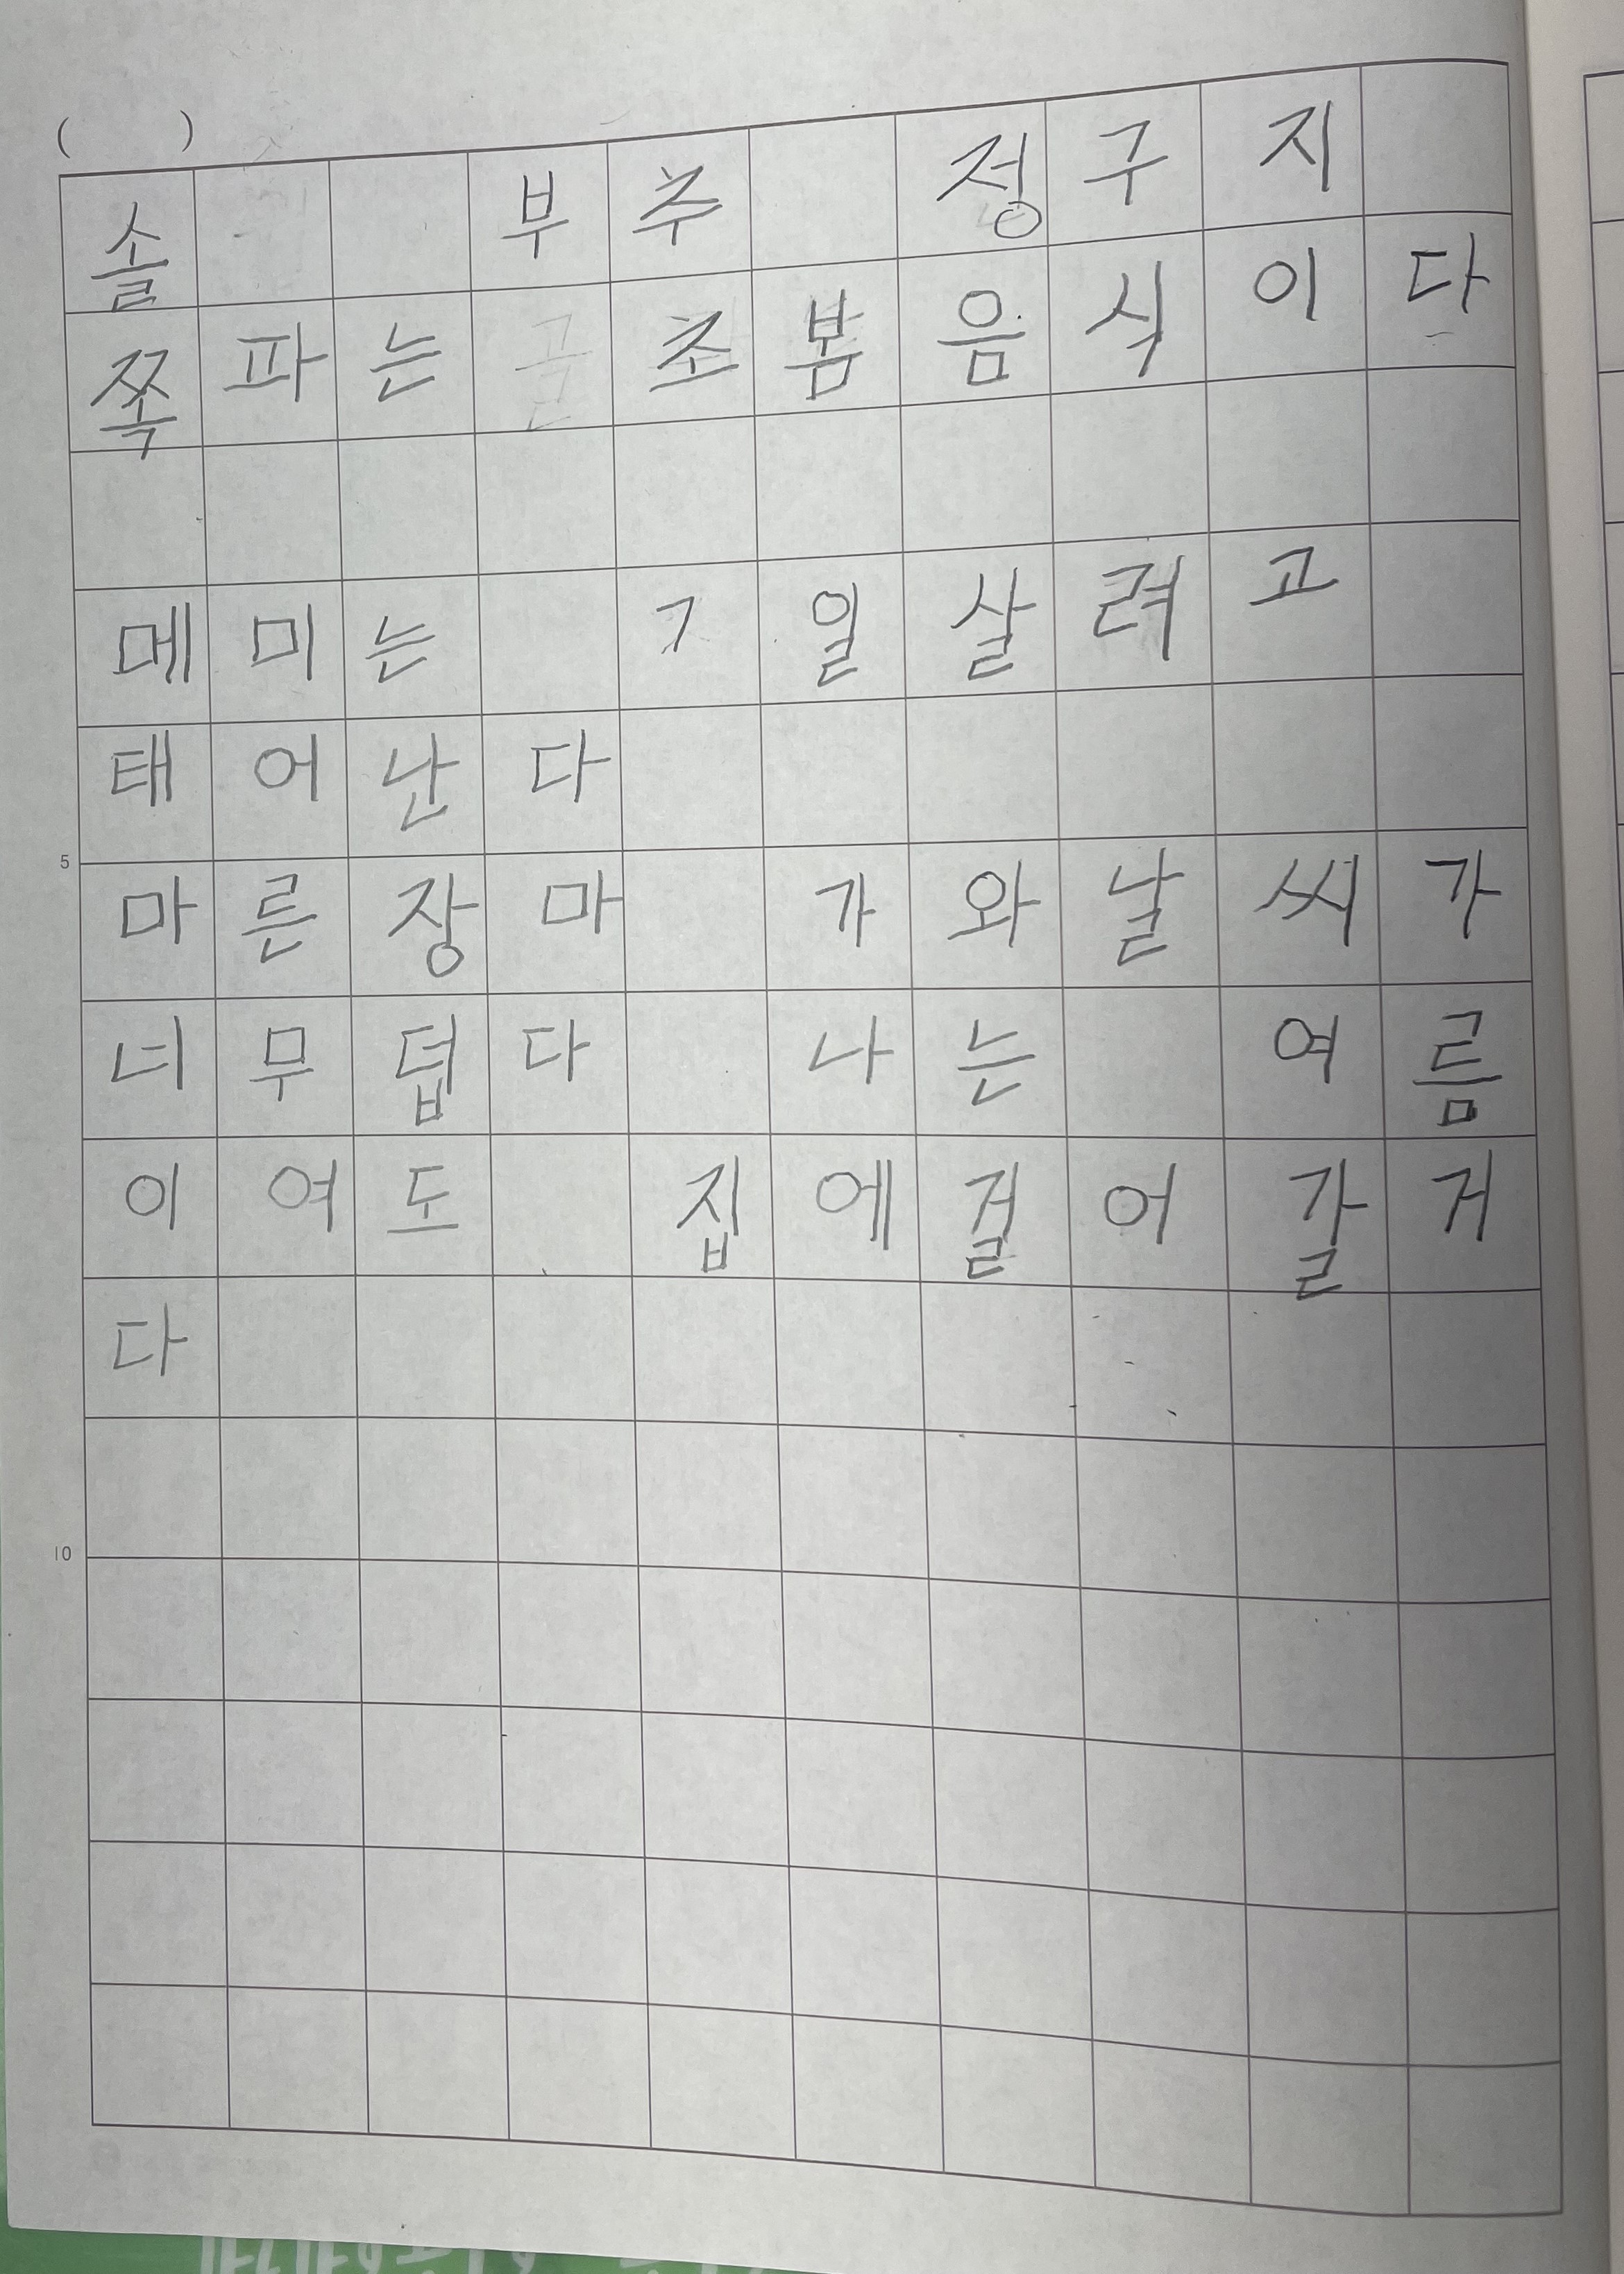 ( )
솔 부추 정구지
쪽파는 초봄음식이다
메미는 7일살려고
태어난다
5
마른장마 가와날씨가
너무덥다 나는 여름
이여도 집에걸어갈거
다
10